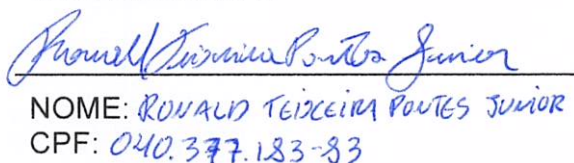 Ronald Teixeira Pontes Junior
NOME: RONALD TEIXEIRA PONTES JUNIOR
CPF: 040.377.183-83